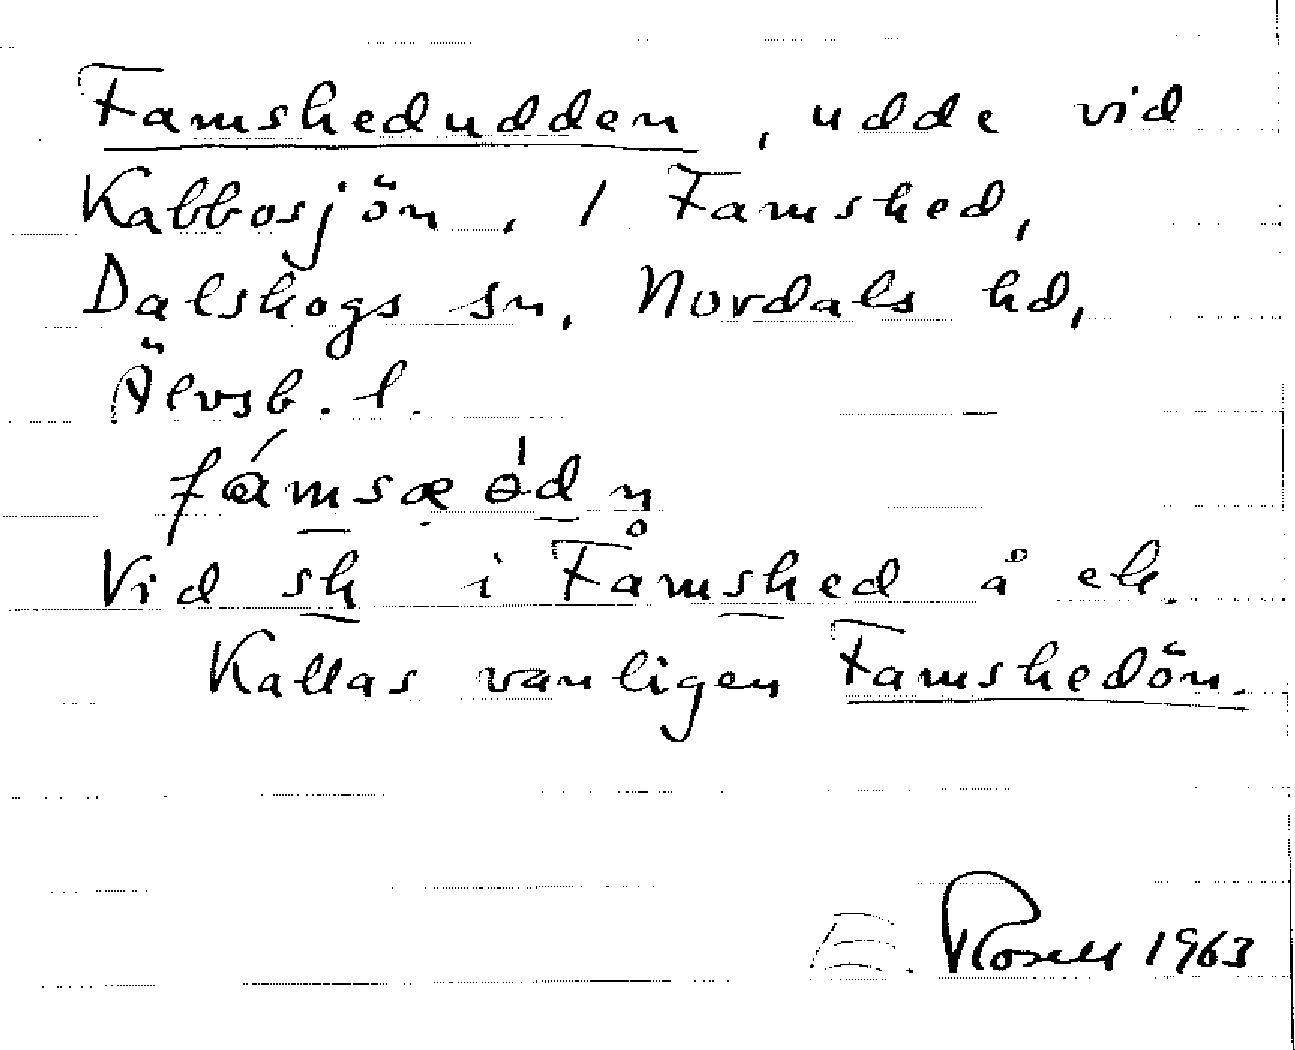 Famshedudden, udde vid
Kabbosjön, 1 Famshed,
Dalskogs sn, Nordals hd,
Älvsb. l.
Vid sk i Famshed å ek.
Kallas vanligen Famshedön.
E. Rosell 1963